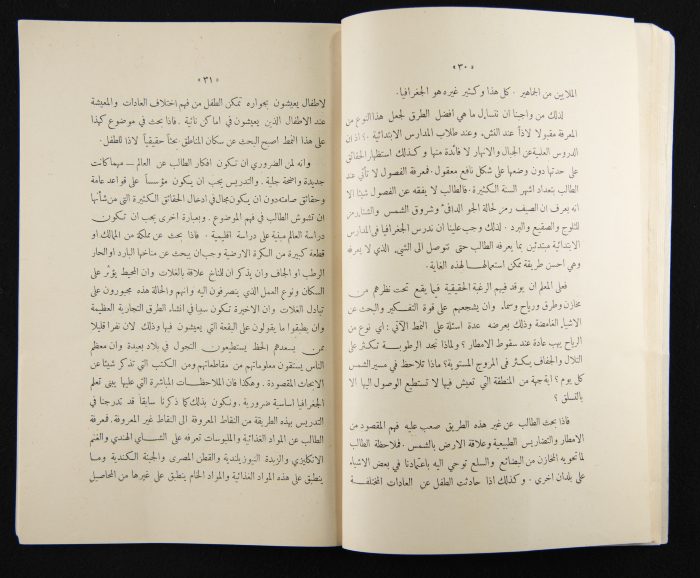 «٣٠»
الملايين من الجماهير . كل هذا وكثير غيره هو الجغرافيا.
لذلك من واجبنا ان نتساءل ما هي افضل الطرق لجعل هذا النوع من
المعرفة مقبولا لاذاً عند النشء وعند طلاب المدارس الابتدائية .؟ اذ ان
الدروس العلمية عن الجبال والانهار لا فائدة منها وكذلك استظهار الحقائق
على حدتها دون وضعها على شكل نافع معقول . فمعرفة الفصول لا تأتي عند
الطالب بتعداد اشهر السنة الكثيرة . فالطالب لا يفقه عن الفصول شيئا الا
انه يعرف ان الصيف رمز لحالة الجو الدافئ وشروق الشمس والشتاء رمز
للثلوج والصقيع والبرد . لذلك وجب علينا ان ندرس الجغرافيا في المدارس
الابتدائية مبتدئين بما يعرفه الطالب حتى نتوصل الى الشيء الذي لا يعرفه
وهي احسن طريقة يمكن استعمالها لهذه الغاية .
فعلى المعلم ان يوقد فيهم الرغبة الحقيقية فيما يقع تحت نظرهم من
مخازن وطرق ورياح وسماء وان يشجعهم على قوة التفكير والبحث عن
الاشياء الغامضة وذلك بعرضه عدة اسئلة على النمط الآتي : اي نوع من
الرياح يهب عادة عند سقوط الامطار ؟ ولماذا نجد الرطوبة تكثر على
التلال والجفاف يكثر في المروج المستوية ؟ ماذا تلاحظ في مسير الشمس
كل يوم ؟ اية جهة من المنطقة التي تعيش فيها لا تستطيع الوصول اليها الا
بالتسلق ؟
فاذا بحث الطالب عن غير هذه الطريق صعب عليه فهم المقصود من
الامطار والتضاريس الطبيعية وعلاقة الارض بالشمس . فملاحظة الطالب
لما تحويه المخازن من البضائع والسلع توحي اليه باعتمادنا في بعض الاشياء
على بلدان اخرى . وكذلك اذا حادثت الطفل عن العادات المختلفة
«٣١»
لاطفال يعيشون بجواره تمكن الطفل من فهم اختلاف العادات والمعيشة
عند الاطفال الذين يعيشون في اماكن نائية . فاذا بحث في موضوع كهذا
على هذا النمط اصبح البحث عن سكان المناطق بحثاً حقيقياً لاذا للطفل .
وانه لمن الضروري ان تكون افكار الطالب عن العالم – مهما كانت
جديدة واضحة جلية . والتدريس يجب ان يكون مؤسساً على قواعد عامة
وحقائق صامته دون ان يكون مجال في ادخال الحقائق الكثيرة التي من شأنها
ان تشوش الطالب في فهم الموضوع . وبعبارة اخرى يجب ان تكون
دراسة العالم مبنية على دراسة اقليمية . فاذا بحث عن مملكة من الممالك او
قطعة كبيرة من الكرة الارضية وجب ان يبحث عن مناخها البارد او الحار
الرطب او الجاف وان يذكر ان للمناخ علاقة بالغلات وان المحيط يؤثر على
السكان ونوع العمل الذي ينصرفون اليه وانهم والحالة هذه مجبورون على
تبادل الغلات وان الاخيرة تكون سببا في انشاء الطرق التجارية العظيمة
وان يطبقوا ما يقولون على البقعة التي يعيشون فيها وذلك لان نفرا قليلا
ممن يسعدهم الحظ يستطيعون التجول في بلاد بعيدة وان معظم
الناس يستقون معلوماتهم من مقاطعاتهم ومن الكتب التي تذكر شيئا عن
الابحاث المقصودة . وهكذا فان الملاحظات المباشرة التي عليها يبنى تعلم
الجغرافيا اساسية ضرورية . ونكون بذلك كما ذكرنا سابقا قد تدرجنا في
التدريس بهذه الطريقة من النقاط المعروفة الى النقاط غير المعروفة . فمعرفة
الطالب عن المواد الغذائية والملبوسات تعرفه على الشاي الهندي والغنم
الانكليزي والزبدة النيوزيلندية والقطن المصري والجبنة الكندية وما
ينطبق على هذه المواد الغذائية والمواد الخام ينطبق على غيرها من المحاصيل